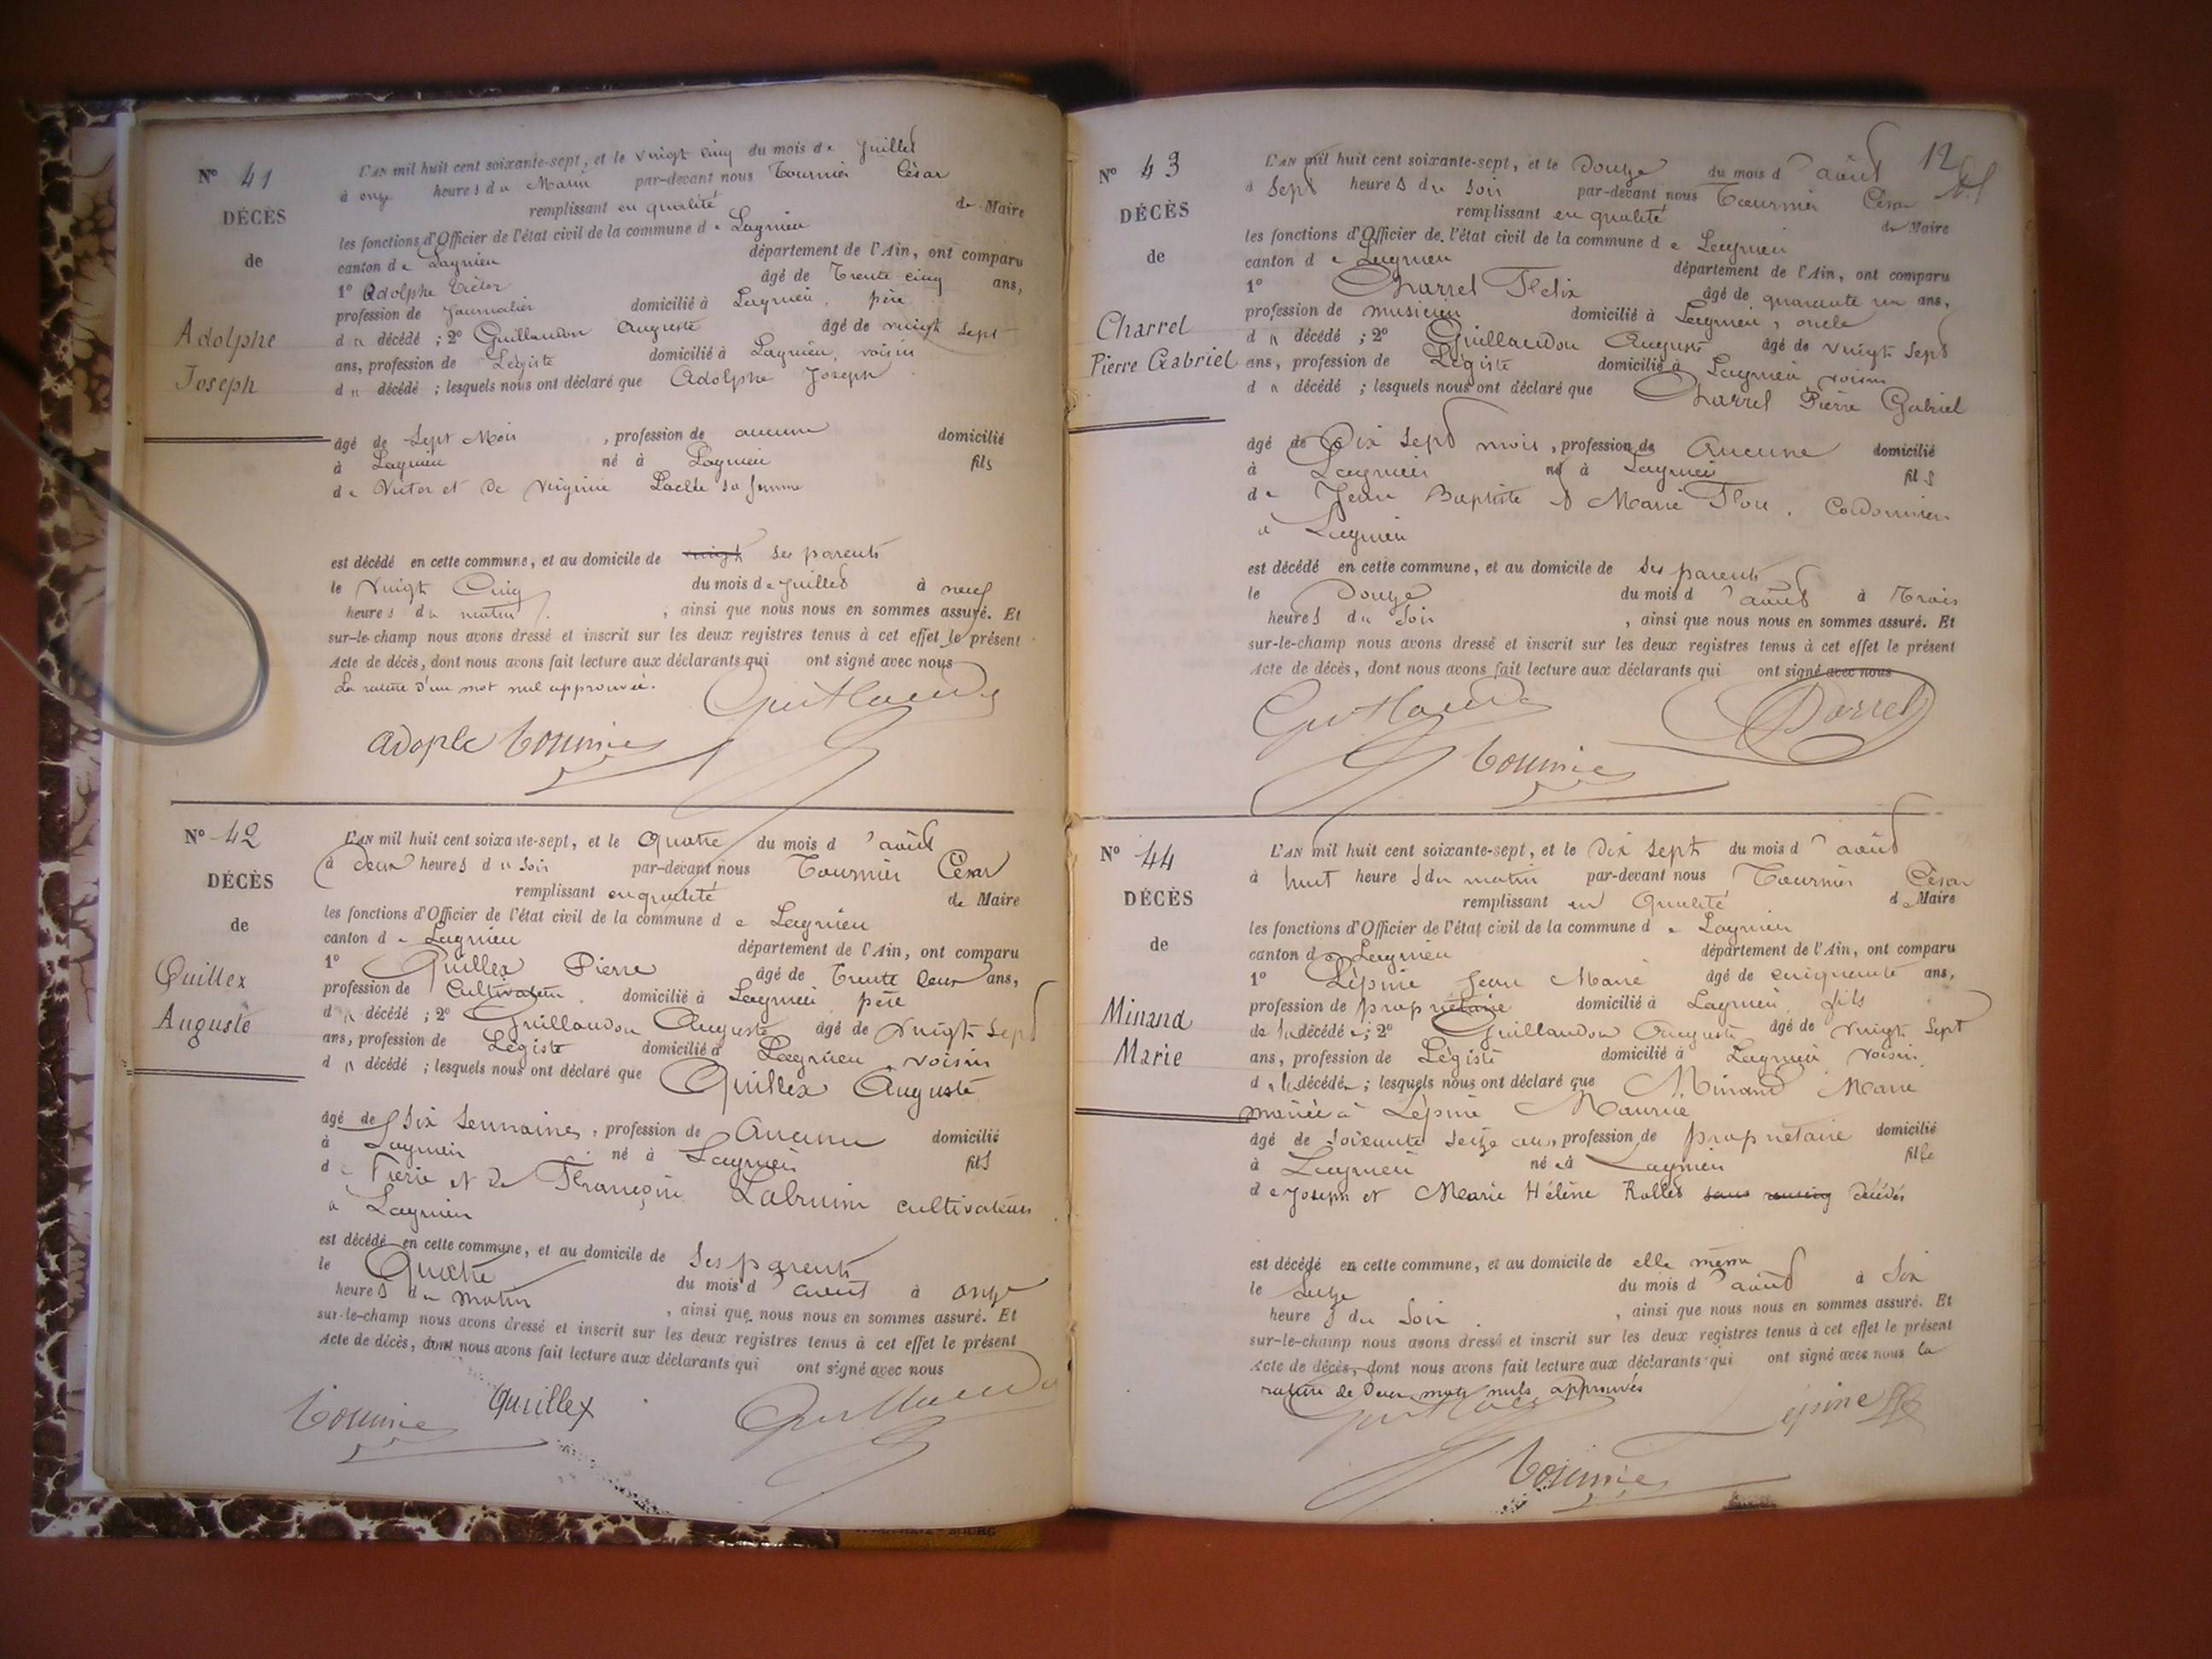 N° 41
DÉCÈS
de
Adolphe
Joseph
L'AN mil huit cent soixante-sept, et le vingt cinq du mois de Juillet
à onze heures du Matin par-devant nous Tournier César
remplissant en qualité de Maire
les fonctions d'Officier de l'état civil de la commune de Lagnieu
canton de Lagnieu département de l'Ain, ont comparu
1° Adolphe Victor âgé de Trente cinq ans,
profession de Journalier domicilié à Lagnieu, père
du décédé ; 2° Guillaudon Auguste âgé de vingt sept
ans, profession de Légiste domicilié à Lagnieu, voisin
du décédé ; lesquels nous ont déclaré que Adolphe Joseph
âgé de Sept Mois , profession de aucune domicilié
à Lagnieu né à Lagnieu fils
de Victor et de Virginie sa femme
est décédé en cette commune, et au domicile de vingt ses parents
le Vingt Cinq du mois de Juillet à neuf
heures du matin , ainsi que nous nous en sommes assuré. Et
sur-le-champ nous avons dressé et inscrit sur les deux registres tenus à cet effet le présent
Acte de décès, dont nous avons fait lecture aux déclarants qui ont signé avec nous
La rature d'un mot nul approuvée.
Guillaudon
adople Tournier
N° 42
DÉCÈS
de
Quillex
Auguste
L'AN mil huit cent soixante-sept, et le Quatre du mois d'août
à deux heures du soir par-devant nous Tournier César
remplissant en qualité de Maire
les fonctions d'Officier de l'état civil de la commune de Lagnieu
canton de Lagnieu département de l'Ain, ont comparu
1° Quillex Pierre âgé de Trente deux ans,
profession de Cultivateur domicilié à Lagnieu père
du décédé ; 2° Guillaudon Auguste âgé de vingt sept
ans, profession de Légiste domicilié à Lagnieu, voisin
du décédé ; lesquels nous ont déclaré que Quillex Auguste
âgé de Six Semaines , profession de Aucune domicilié
à Lagnieu né à Lagnieu fils
de Pierre et de Françoise Labruin cultivateurs
à Lagnieu
est décédé en cette commune, et au domicile de Ses parents
le Quatre du mois d'août à onze
heures du matin , ainsi que nous nous en sommes assuré. Et
sur-le-champ nous avons dressé et inscrit sur les deux registres tenus à cet effet le présent
Acte de décès, dont nous avons fait lecture aux déclarants qui ont signé avec nous
Tournier Quillex Guillaudon
12
N° 43
DÉCÈS
de
Charrel
Pierre Gabriel
L'AN mil huit cent soixante-sept, et le Douze du mois d'août
à Sept heures du soir par-devant nous Tournier César
remplissant en qualité de Maire
les fonctions d'Officier de l'état civil de la commune de Lagnieu
canton de Lagnieu département de l'Ain, ont comparu
1° Charrel Felix âgé de quarante un ans,
profession de musicien domicilié à Lagnieu, oncle
du décédé ; 2° Guillaudon Auguste âgé de vingt sept
ans, profession de Légiste domicilié à Lagnieu, voisin
du décédé ; lesquels nous ont déclaré que Charrel Pierre Gabriel
âgé de Dix sept mois , profession de Aucune domicilié
à Lagnieu né à Lagnieu fils
de Jean Baptiste & Marie . Cordonnier
à Lagnieu
est décédé en cette commune, et au domicile de Ses parents
le Douze du mois d'août à Trois
heures du Soir , ainsi que nous nous en sommes assuré. Et
sur-le-champ nous avons dressé et inscrit sur les deux registres tenus à cet effet le présent
Acte de décès, dont nous avons fait lecture aux déclarants qui ont signé avec nous
Guillaudon Charrel
Tournier
N° 44
DÉCÈS
de
Minand
Marie
L'AN mil huit cent soixante-sept, et le Dix sept du mois d'août
à huit heures du matin par-devant nous Tournier César
remplissant en Qualité de Maire
les fonctions d'Officier de l'état civil de la commune de Lagnieu
canton de Lagnieu département de l'Ain, ont comparu
1° Lépine Jean Marie âgé de cinquante ans,
profession de propriétaire domicilié à Lagnieu fils
de la décédée ; 2° Guillaudon Auguste âgé de vingt sept
ans, profession de Légiste domicilié à Lagnieu voisin
de la décédée ; lesquels nous ont déclaré que Minand Marie
mariée à Lépine Maurice
âgé de soixante seize ans, profession de propriétaire domicilié
à Lagnieu née à Lagnieu fille
de Joseph et Marie Hélène Rollet sans décédés
est décédé en cette commune, et au domicile de elle même
le Seize du mois d'août à Six
heures du Soir , ainsi que nous nous en sommes assuré. Et
sur-le-champ nous avons dressé et inscrit sur les deux registres tenus à cet effet le présent
Acte de décès, dont nous avons fait lecture aux déclarants qui ont signé avec nous la
rature de Deux mots nuls approuvés
Guillaudon Lépine
Tournier